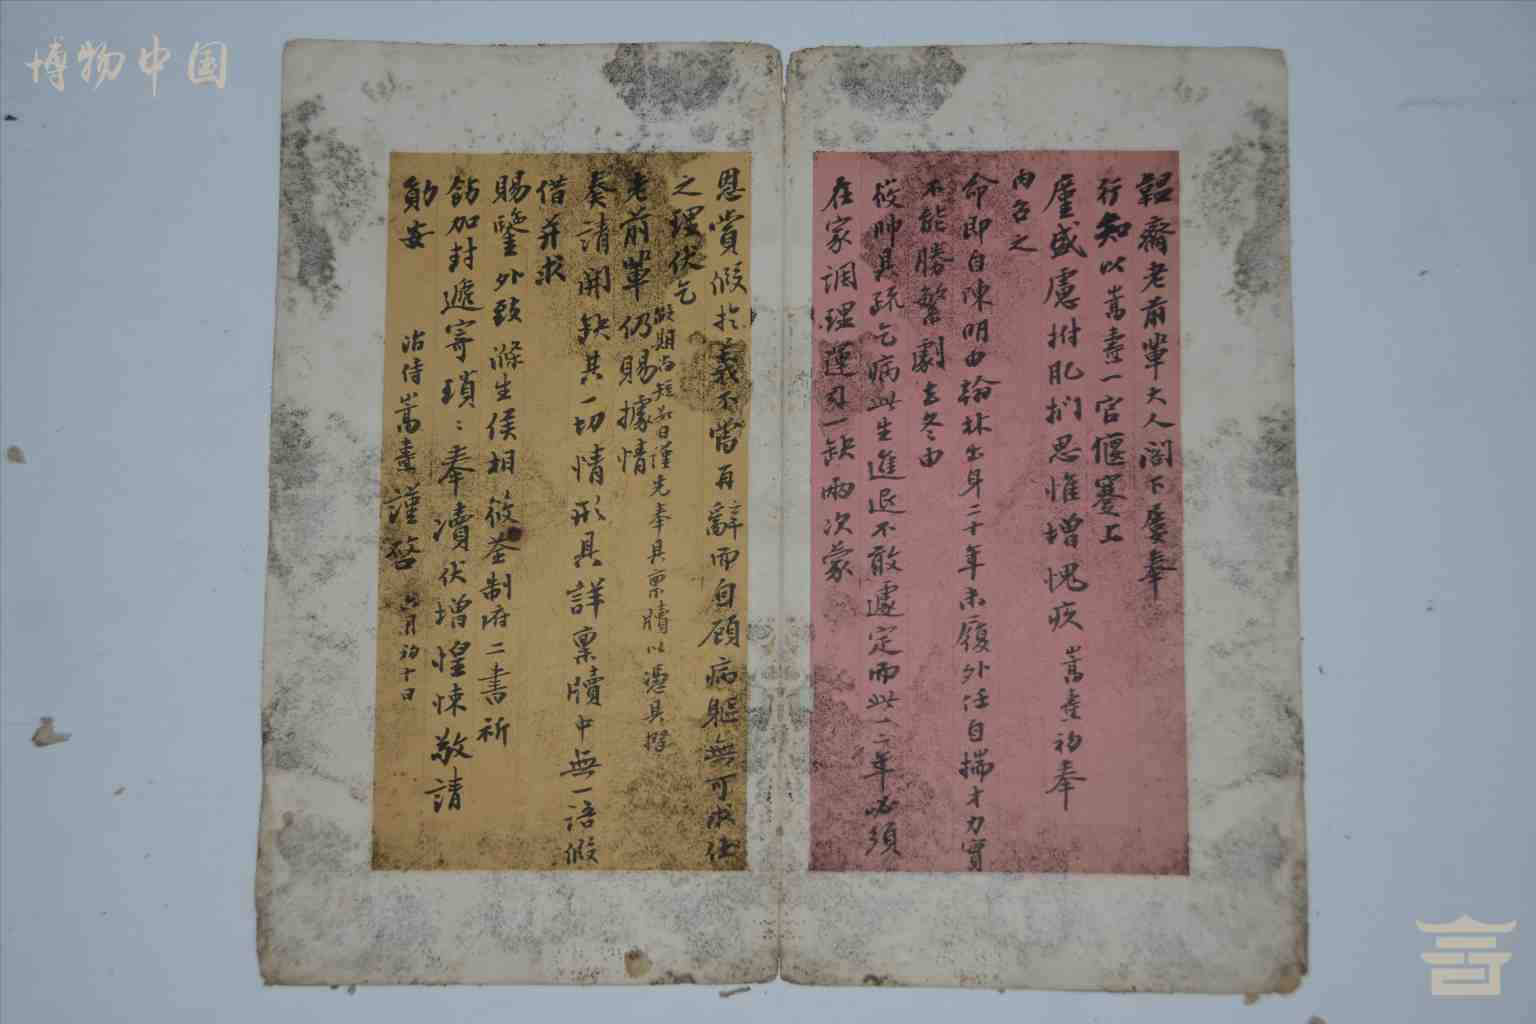 博物中国
韞齋老前輩大人閣下屢奉
行知以嵩燾一官偃蹇上
廑盛慮拊躬捫思惟增愧疚嵩燾初奉
內召之
命即自陳明由翰林出身二十年未履外任自揣才力實
不能勝繁劇去冬由
筱帥具疏乞病此生進退不敢遽定而此一二年必須
在家調理運司一缺兩次蒙
恩賞假於義不當再辭而自顧病軀無可求仕
之理伏乞
老前輩仍賜據情
限期尚短茲日謹先奉具稟牘以憑具摺
奏請開缺其一切情形具詳稟牘中無一語假
借并求
賜鑒外致滌生侯相筱荃制府二書祈
飭加封遞寄瑣瑣奉瀆伏增惶悚敬請
勛安
治侍嵩燾謹啓 六月初十日